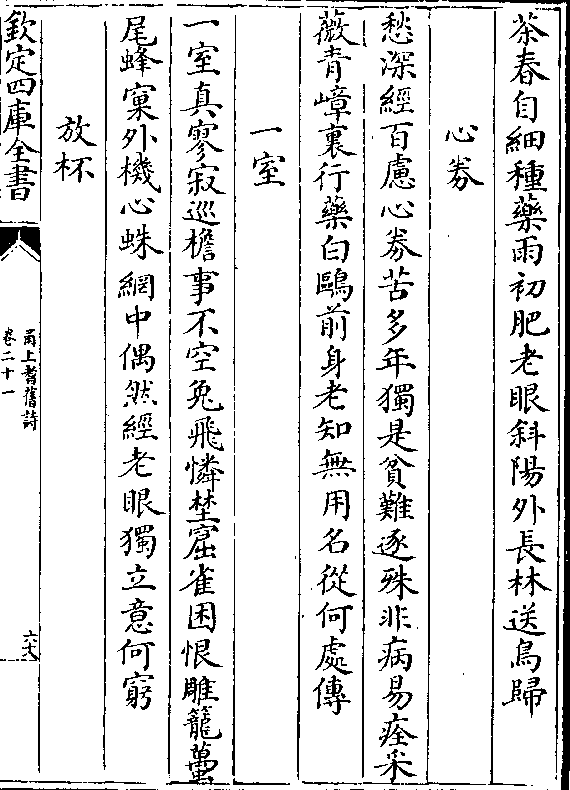 茶春自細種藥雨初肥老眼斜陽外長林送鳥歸
心劵
愁深經百慮心劵苦多年獨是貧難逐殊非病易痊采
薇青嶂裏行藥白鷗前身老知無用名從何處傳
一室
一室真寥寂巡檐事不空兔飛憐埜窟雀困恨雕籠萬
尾蜂窠外機心蛛網中偶然經老眼獨立意何窮
放杯
欽定四庫全書
甬上耆舊詩
卷二十一
六